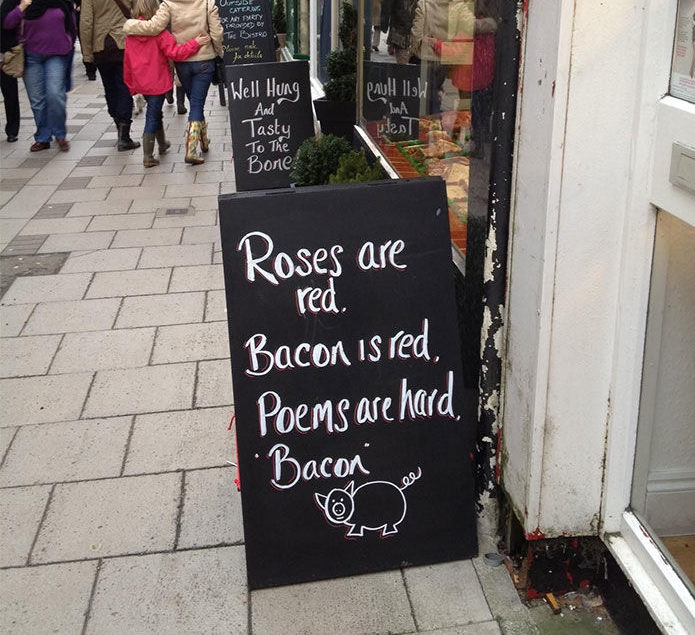 OUTSIDE
CATERING
FOR ANY PARTY
PROVIDED BY
THE BISTRO
Please ask
for details
Well Hung
And
Tasty
To The
Bone
Well Hung
And
Tasty
Roses are
red.
Bacon is red.
Poems are hard.
"Bacon"